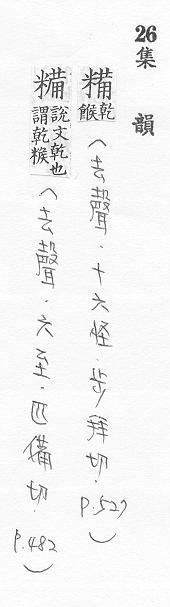 26集韻
𥻅乾餱（去聲．十六怪．步拜切．P.527）
𥻅說文乾也謂乾糇（去聲．六至．匹備切．P.482）